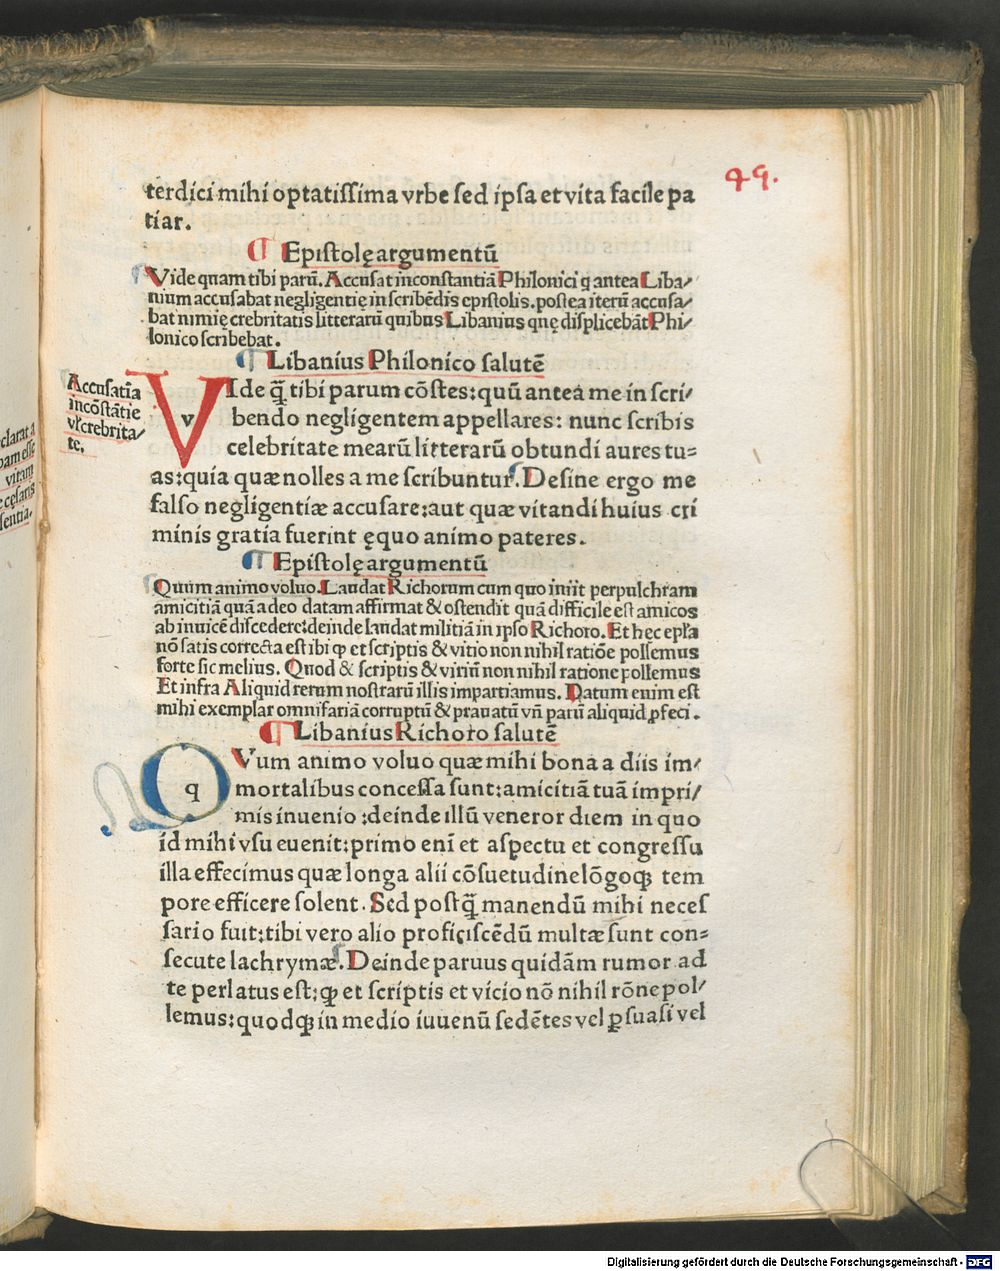 49.
terdici mihi optatissima vrbe sed ipsa et vita facile pa
tiar.
¶ Epistolę argumentū
Vide quam tibi parū. Accusat inconstantiā Philonici q̇ antea Liba/
nium accusabat negligentię in scribēdis epistolis. postea iterū accusa/
bat nimię crebritatis litterarū quibus Libanius quę displicebāt Phi/
lonico scribebat.
¶ Libanius Philonico salutē
Accusatīa
incōstātie
vl' crebrita/
te.
VIde q̄ tibi parum cōstes: quū antea me in scri/
v bendo negligentem appellares: nunc scribis
celebritate mearū litterarū obtundi aures tu=
as: quia quæ nolles a me scribuntur. Desine ergo me
falso negligentiæ accusare: aut quæ vitandi huius cri
minis gratia fuerint ęquo animo pateres.
¶ Epistolę argumentū
Quum animo voluo. Laudat Richorum cum quo iniit perpulchram
amicitiā quā adeo datam affirmat & ostendit quā difficile est amicos
ab inuicē discedere: deinde laudat militiā in ipso Richoro. Et hec epl'a
nō satis correcta est ibi ꝙ et scriptis & vitio non nihil ratiōe pollemus
forte sic melius. Quod & scriptis & viriū non nihil ratione pollemus
Et infra Aliquid rerum nostrarū illis impartiamus. Datum enim est
mihi exemplar omnifariā corruptū & prauatū vn̄ parū aliquid ꝓfeci.
¶ Libanius Richoro salutē
QVum animo voluo quæ mihi bona a diis im/
q mortalibus concessa sunt: amicitiā tuā impri/
mis inuenio: deinde illū veneror diem in quo
id mihi vsu euenit: primo eni et aspectu et congressu
illa effecimus quæ longa alii cōsuetudine lōgoqꝫ tem
pore efficere solent. Sed postq̄ manendū mihi neces
sario fuit: tibi vero alio proficiscēdū multæ sunt con=
secute lachrymæ. Deinde paruus quidām rumor ad
te perlatus est: ꝙ et scriptis et vicio nō nihil rōne pol/
lemus: quodqꝫ in medio iuuenū sedētes vel ꝑsuasi vel
clarat a
bam esse
vitam
e cęsaris
sentia.
Digitalisierung gefördert durch die Deutsche Forschungsgemeinschaft - DFG